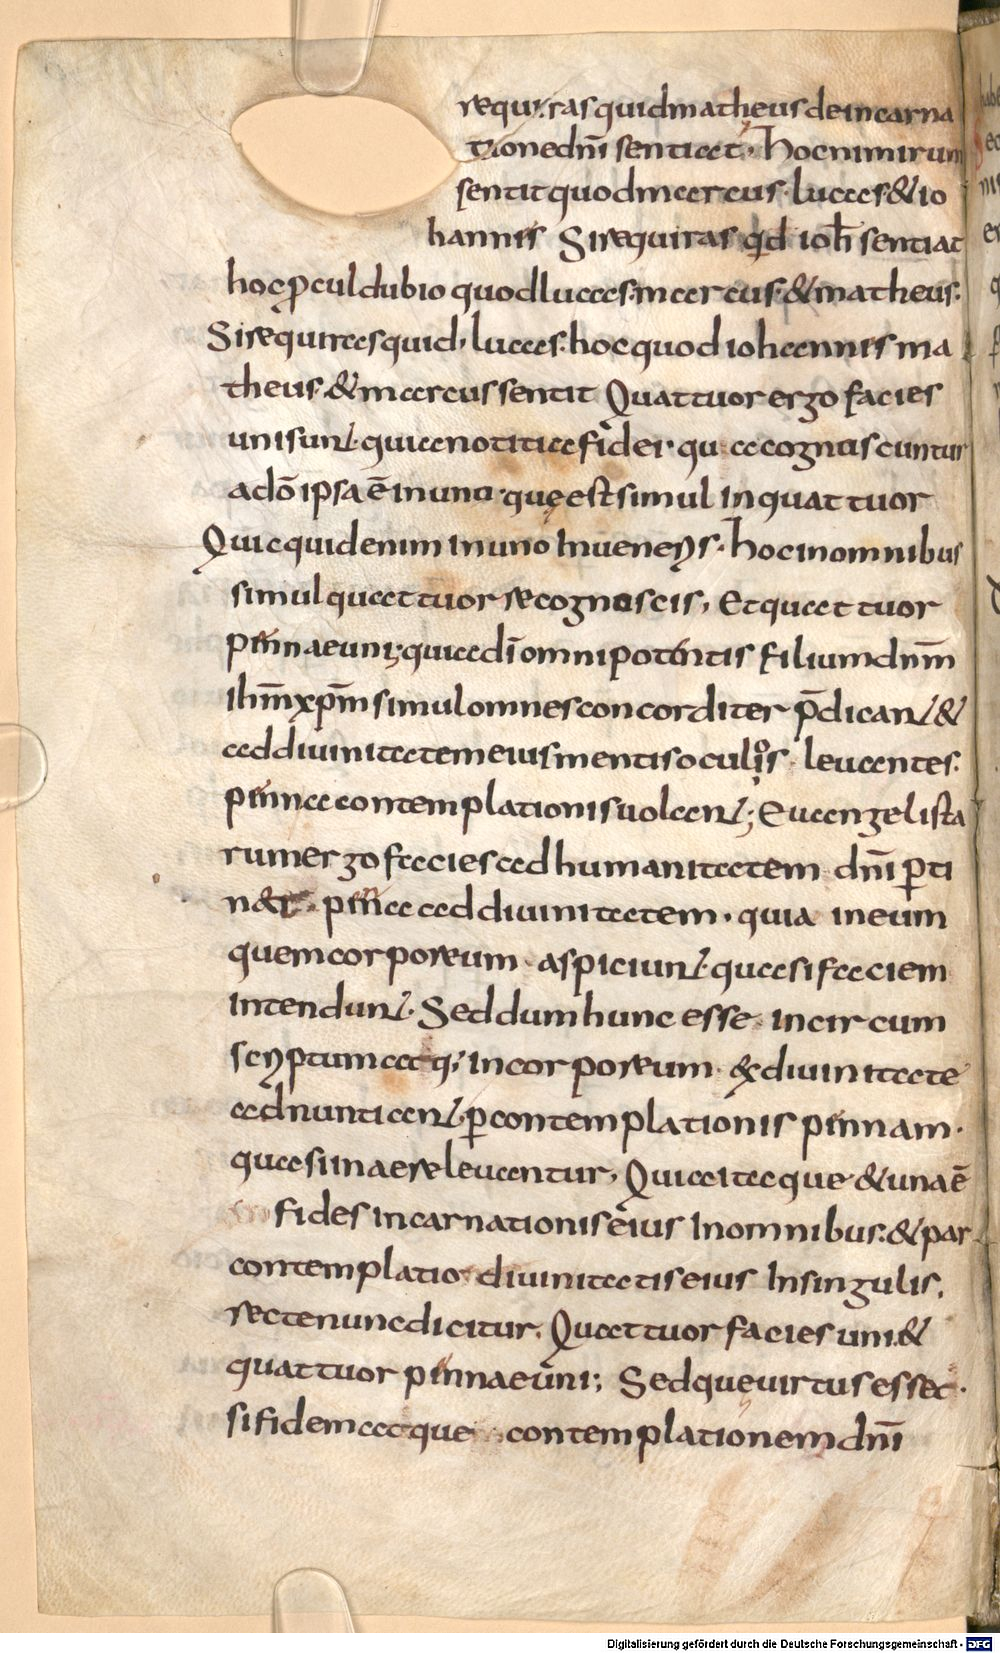 requiras quid matheus de incarna
tione dn̄i sentiat, hoc nimirum
sentit quod marcus · lucas · & io
hannis Si requiras qd ioh̄ sentiat
hoc ꝓcul dubio quod lucas · marcus · & matheus ·
Si requiras quid, lucas · hoc quod iohannis ma
theus · & marcus sentit Quattuor ergo facies
uni sunt · quia notitia fidei · qua cognuscuntur
a dō ipsa ē in uno · quę est simul in quattuor
Quicquid enim in uno inveneris · hoc in omnibus
simul quattuor recognoscis, Et quattuor
pinnae uni; quia dī omnipotentis filium dn̄m
ihm̄ xp̄m simul omnes concorditer p̄dicant &
ad divinitatem eius mentis oculos levantes ·
pinna contemplationis volant; Evangelista
rum ergo facies ad humanitatem dn̄i ꝑti
n& · pinna ad divinitatem · quia in eum
quem corporeum · aspiciunt · quasi faciem
intendunt · Sed dum hunc esse incircum
scriptum atq; incorporeum · ex divinitate
adnuntiant · ꝑ contemplationis pinnam ·
quasi in aere levantur, Quia itaque & una ē
fides incarnationis eius In omnibus · & par
contemplatio divinitatis eius In singulis,
recte nunc dicitur, Quattuor facies uni · &
quattuor pinnae uni; Sed que virtus esset ·
si fidem atque contemplationem dn̄i
Digitalisierung gefördert durch die Deutsche Forschungsgemeinschaft - DFG